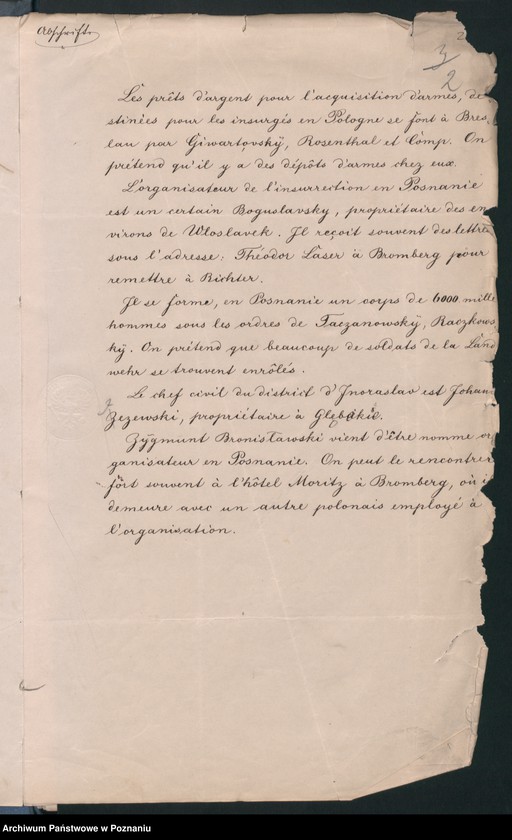 Abschrift
2
3
2
Les prêts d'argent pour l'acquisition d'armes, de
stinées pour les insurgés en Pologne se font à Bres,
lau par Giwartovskÿ, Rosenthal et Còmp. On
prétend qu'il y a des dépôts d'armes chez eux.
L'organisateur de l'insurrection en Posnanie
est un certain Boguslavsky, propriétaire des en
virons de Wloslavek. Il reçoit souvent des lettres
sous l'adresse: Théodor Läser à Bromberg pour
remettre à Richter.
Il se forme, en Posnanie un corps de 6000 mille
hommes sous les ordres de Taczanowskÿ, Raczkows
kÿ. On prétend que beaucoup de soldats de la Land
wehr se trouvent enrôlés.
Le chef civil du district d'Inoraslav est Johan
Zezewski, propriétaire à Głębokie.
Zÿgmunt Bronisławski vient d'être nomme or
ganisateur en Posnanie. On peut le rencontrer
fôrt souvent à l'hôtel Moritz à Bromberg, où i
demeure avec un autre polonais employé à
l'organisation.
Archiwum Państwowe w Poznaniu